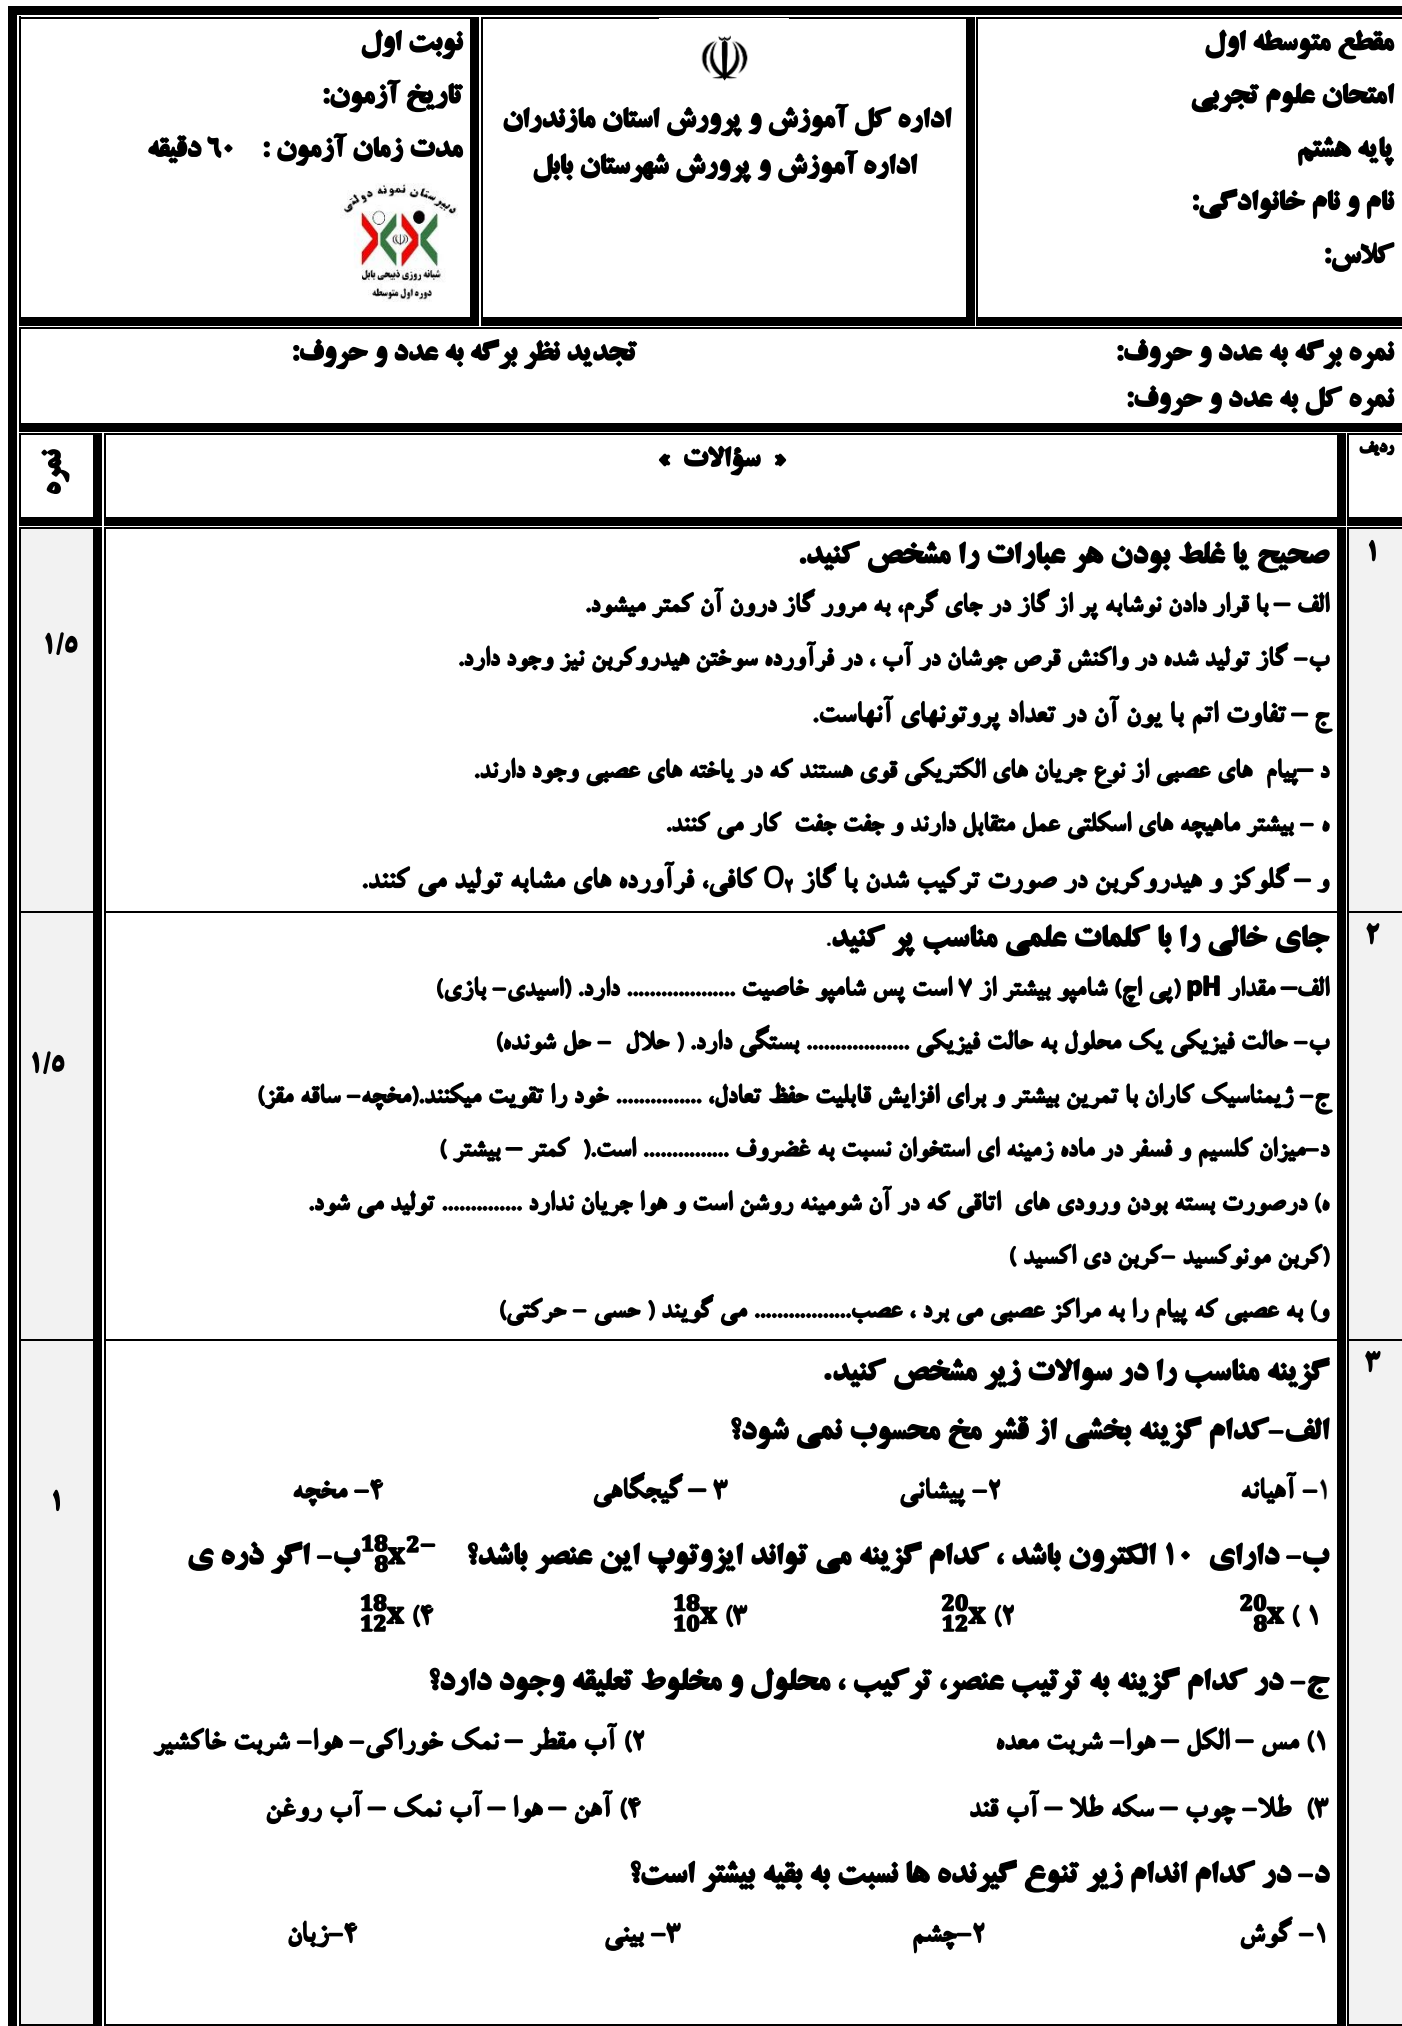 مقطع متوسطه اول
امتحان علوم تجربی
پایه هشتم
نام و نام خانوادگی:
کلاس:
اداره کل آموزش و پرورش استان مازندران
اداره آموزش و پرورش شهرستان بابل
نوبت اول
تاریخ آزمون:
مدت زمان آزمون : ٦٠ دقیقه
دبیرستان نمونه دولتی
شبانه روزی ذبیحی بابل
دوره اول متوسطه
نمره برگه به عدد و حروف: تجدید نظر برگه به عدد و حروف:
نمره کل به عدد و حروف:
ردیف « سؤالات » نمره
۱ صحیح یا غلط بودن هر عبارات را مشخص کنید.
الف – با قرار دادن نوشابه پر از گاز در جای گرم، به مرور گاز درون آن کمتر میشود.
۱/٥
ب- گاز تولید شده در واکنش قرص جوشان در آب ، در فرآورده سوختن هیدروکربن نیز وجود دارد.
ج – تفاوت اتم با یون آن در تعداد پروتونهای آنهاست.
د –پیام های عصبی از نوع جریان های الکتریکی قوی هستند که در یاخته های عصبی وجود دارند.
ه - بیشتر ماهیچه های اسکلتی عمل متقابل دارند و جفت جفت کار می کنند.
و – گلوکز و هیدروکربن در صورت ترکیب شدن با گاز O₂ کافی، فرآورده های مشابه تولید می کنند.
۲ جای خالی را با کلمات علمی مناسب پر کنید.
الف– مقدار pH (پی اچ) شامپو بیشتر از ۷ است پس شامپو خاصیت ................... دارد. (اسیدی- بازی)
ب- حالت فیزیکی یک محلول به حالت فیزیکی .................. بستگی دارد. ( حلال - حل شونده)
۱/٥
ج- ژیمناسیک کاران با تمرین بیشتر و برای افزایش قابلیت حفظ تعادل، ............... خود را تقویت میکنند.(مخچه- ساقه مقز)
د-میزان کلسیم و فسفر در ماده زمینه ای استخوان نسبت به غضروف ............... است.( کمتر – بیشتر )
ه) درصورت بسته بودن ورودی های اتاقی که در آن شومینه روشن است و هوا جریان ندارد .............. تولید می شود.
(کربن مونوکسید -کربن دی اکسید )
و) به عصبی که پیام را به مراکز عصبی می برد ، عصب................. می گویند ( حسی - حرکتی)
۳ گزینه مناسب را در سوالات زیر مشخص کنید.
الف-کدام گزینه بخشی از قشر مخ محسوب نمی شود؟
۱- آهیانه ۲- پیشانی ۳ – گیجگاهی ۴- مخچه
۱
ب- دارای ۱۰ الکترون باشد ، کدام گزینه می تواند ایزوتوپ این عنصر باشد؟ ¹⁸₈x²⁻ب- اگر ذره ی
۱ ) ²⁰₈x ۲) ²⁰₁₂x ۳) ¹⁸₁₀x ۴) ¹⁸₁₂x
ج- در کدام گزینه به ترتیب عنصر، ترکیب ، محلول و مخلوط تعلیقه وجود دارد؟
۱) مس – الکل – هوا- شربت معده ۲) آب مقطر – نمک خوراکی- هوا- شربت خاکشیر
۳) طلا- چوب – سکه طلا – آب قند ۴) آهن – هوا – آب نمک – آب روغن
د- در کدام اندام زیر تنوع گیرنده ها نسبت به بقیه بیشتر است؟
۱- گوش ۲-چشم ۳- بینی ۴-زبان